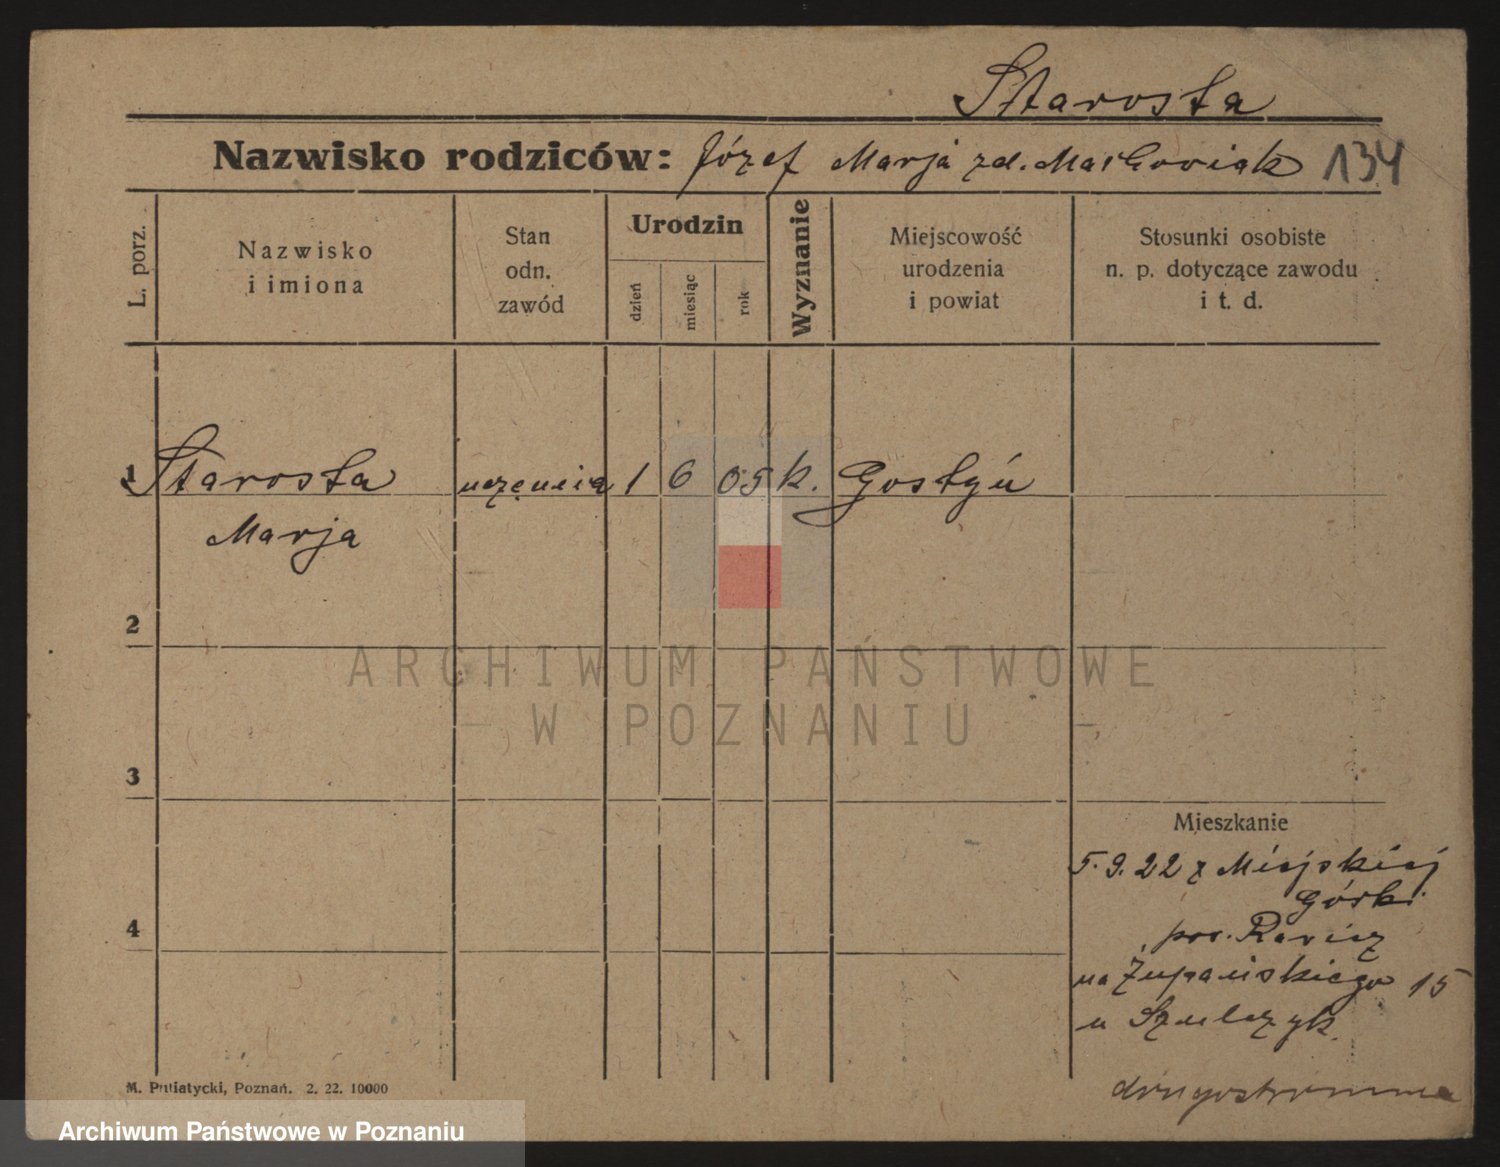 Starosta
Nazwisko rodziców: Józef Marja zd. Maćkowiak 134
L. porz.
Nazwisko
i imiona
Stan
odn.
zawód
Urodzin
dzień
miesiąc
rok
Wyznanie
Miejscowość
urodzenia
i powiat
Stosunki osobiste
n. p. dotyczące zawodu
i t. d.
1 Starosta uczenica 1 6 05 k. Gostyń
Marja
2
ARCHIWUM PAŃSTWOWE
W POZNANIU
3
Mieszkanie
5.9.22 z Miejskiej
Górki
4
pow. Rawicz
na Żupańskiego 15
u Szulczyk.
M. Putiatycki, Poznań. 2. 22. 10000
Archiwum Państwowe w Poznaniu